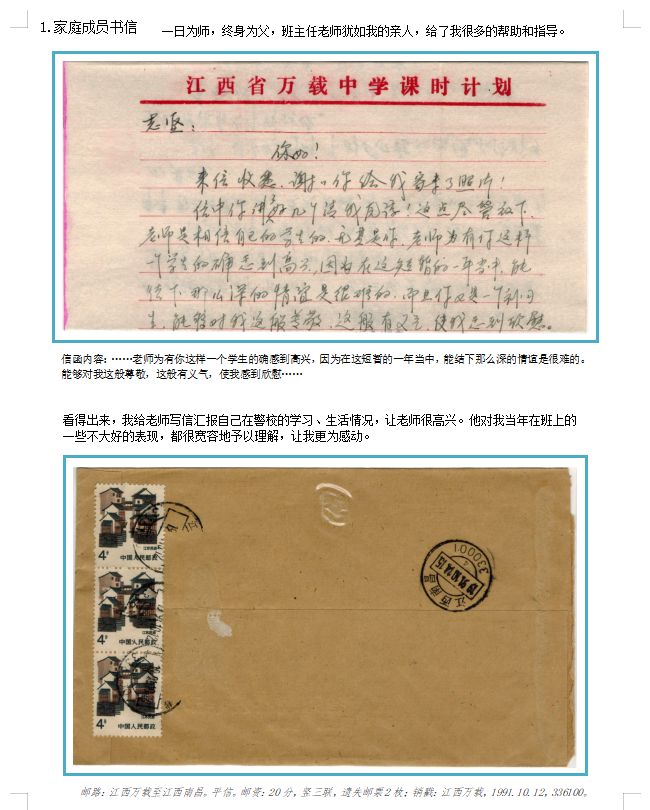 1.家庭成员书信
一日为师，终身为父，班主任老师犹如我的亲人，给了我很多的帮助和指导。
江西省万载中学课时计划
志坚：
你好！
来信收悉，谢谢你给我寄来了照片！
信中你讲好几个请我原谅！这点尽管放下，
老师是相信自己的学生的，尤其是你，老师为有你这样
一个学生的确感到高兴，因为在这短暂的一年当中，能
结下那么深的情谊是很难的，而且你又是一个新同
生，能够对我这般尊敬，这般有义气，使我感到欣慰。
信函内容：……老师为有你这样一个学生的确感到高兴，因为在这短暂的一年当中，能结下那么深的情谊是很难的。
能够对我这般尊敬，这般有义气，使我感到欣慰……
看得出来，我给老师写信汇报自己在警校的学习、生活情况，让老师很高兴。他对我当年在班上的
一些不大好的表现，都很宽容地予以理解，让我更为感动。
4分
江苏民居
中国人民邮政
4分
江苏民居
中国人民邮政
4分
江苏民居
中国人民邮政
330001
江西南昌
邮路：江西万载至江西南昌。平信。邮资：20分，竖三联，遗失邮票2枚；销戳：江西万载，1991.10.12，336100。